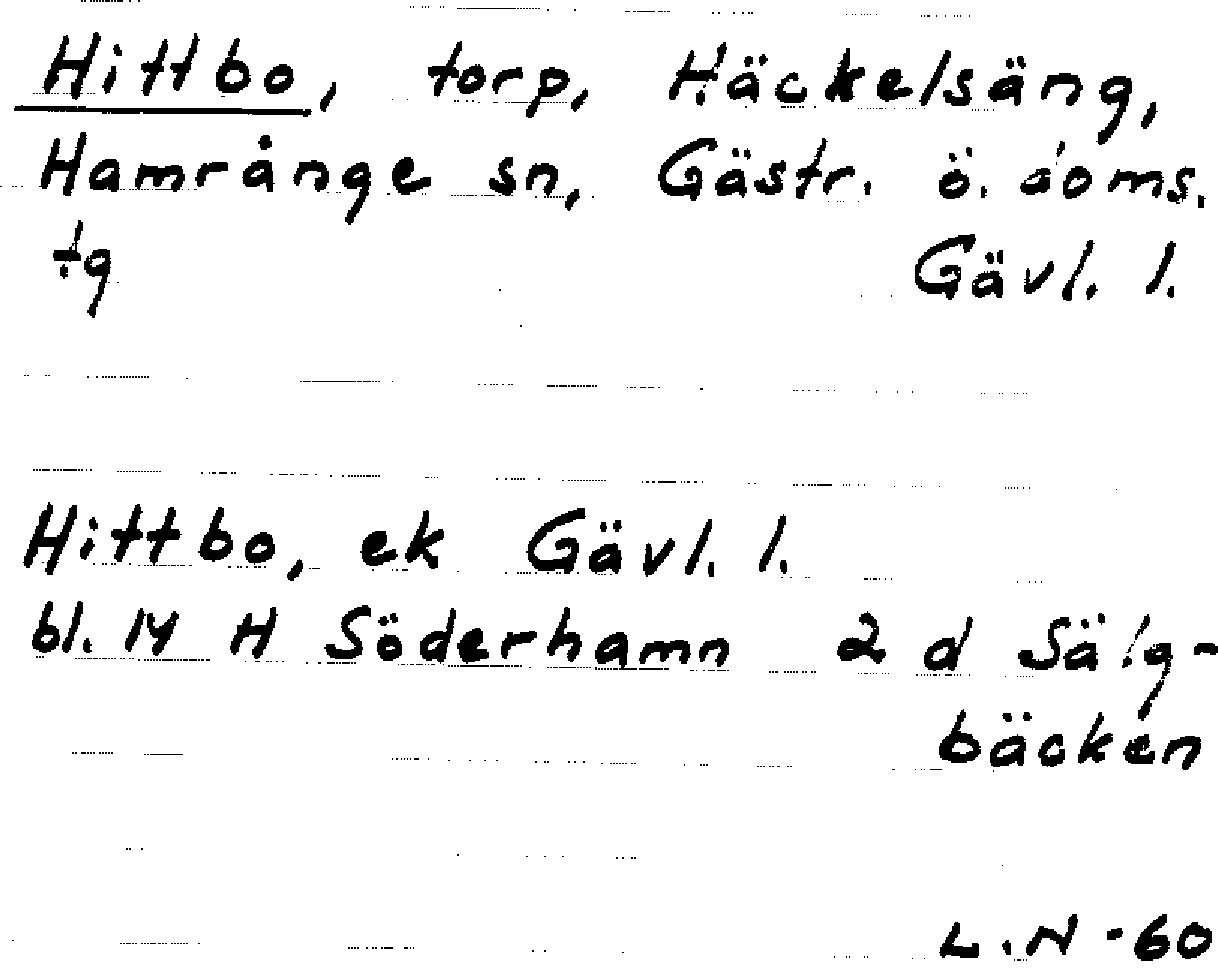 Hittbo, torp, Häckelsäng,
Hamrånge sn, Gästr. ö. doms.
tg Gävl. l.
Hittbo, ek Gävl. l.
bl. 14 H Söderhamn 2 d Sälg-
bäcken
L.N -60